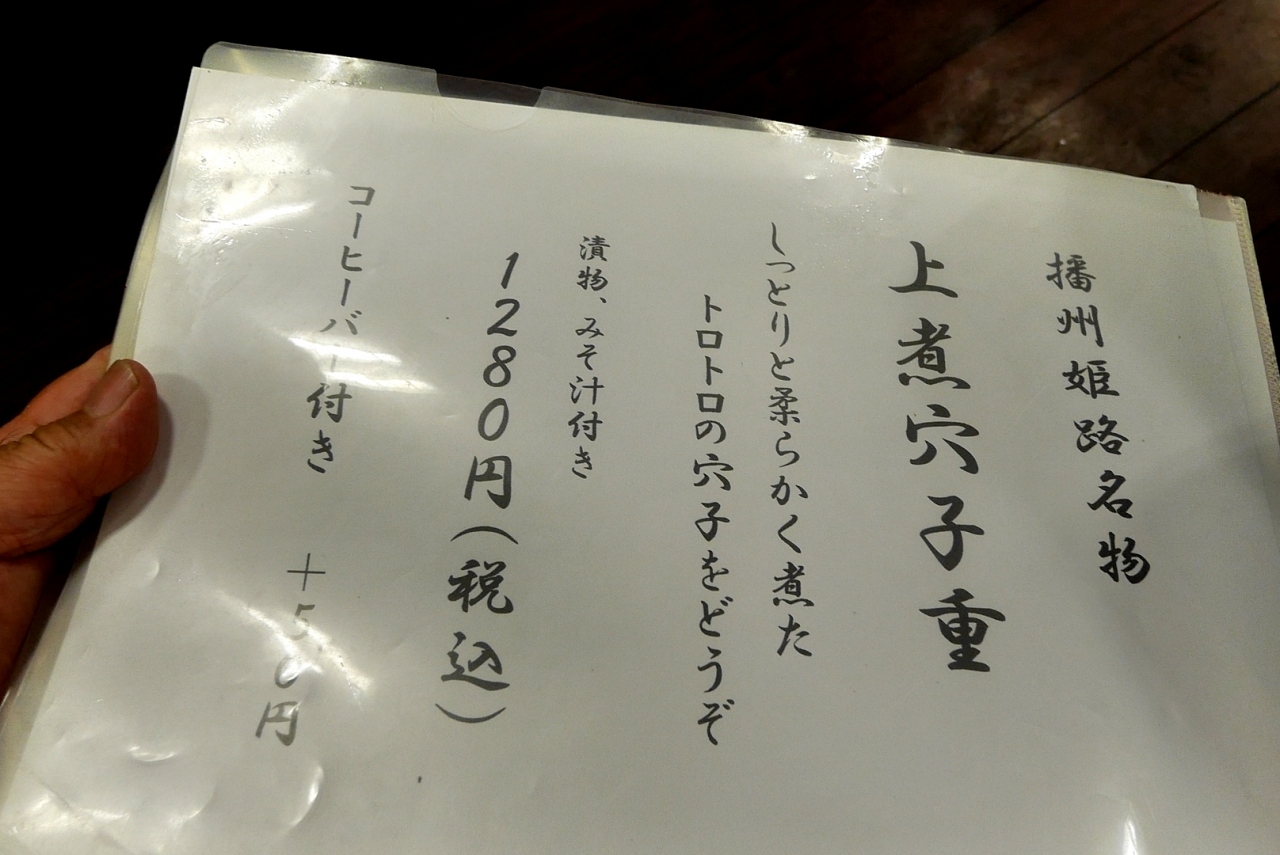 播州姫路名物
上煮穴子重
しっとりと柔らかく煮た
トロトロの穴子をどうぞ
漬物、みそ汁付き
1280円(税込)
コーヒーバー付き ＋50円